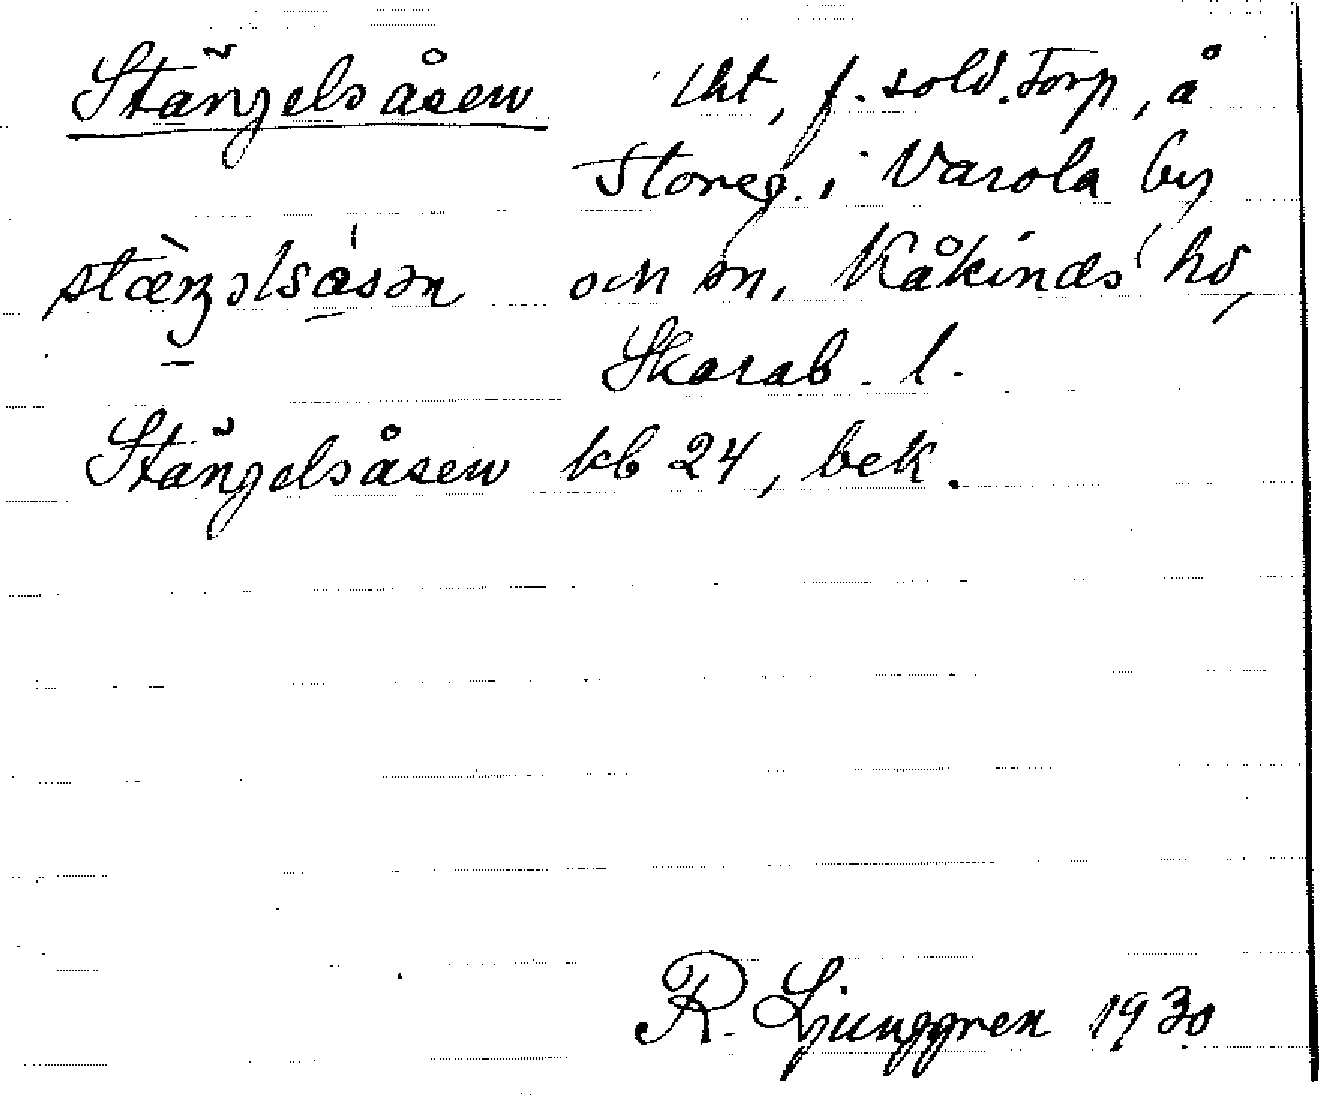 Stängelsåsen lht, f. sold.torp, å
Storeg. i Varola by
stæŋəlsåsən och sn, Kåkinds hd,
Skarab. l.
Stängelsåsen kb 24, bek.
R. Ljunggren 1930